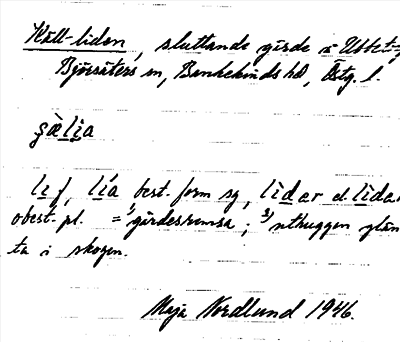 Käll-liden, sluttande gärde i
Björsäters sn, Bankekinds hd, Östg. l.
li f, lia best. form sg, lidar el. lidar
obest. pl. = 1) gärdesremsa; 2) uthuggen glän
ta i skogen.
Maja Nordlund 1946.